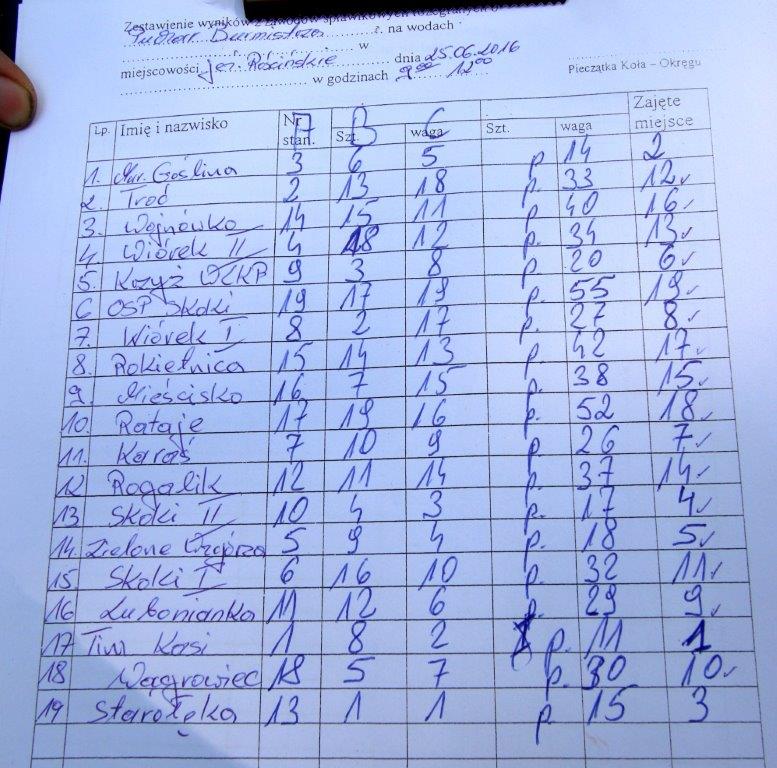 Zestawienie wyników z zawodów
Puchar Burmistrza r. na wodach
w
miejscowości jez. Rościńskie dnia 25.06.2016
w godzinach 9⁰⁰ 12⁰⁰ Pieczątka Koła – Okręgu
Lp. Imię i nazwisko Nr stan. A Szt. B waga C Szt. waga Zajęte miejsce
1. Mur. Goślina 3 6 5 p. 14 2
2. Troć 2 13 18 p. 33 12✓
3. Wojnówko 14 15 11 p. 40 16✓
4. Wiórek II 4 18 12 p. 34 13✓
5. Krzyż WLKP 9 3 8 p. 20 6✓
6 OSP Skoki 19 17 19 p. 55 19✓
7. Wiórek I 8 2 17 p. 27 8✓
8. Rokietnica 15 14 13 p. 42 17✓
9. Mieścisko 16 7 15 p. 38 15✓
10. Rataje 17 19 16 p. 52 18✓
11. Karaś 7 10 9 p. 26 7✓
12 Rogalik 12 11 14 p. 37 14✓
13 Skoki II 10 4 3 p. 17 4✓
14. Zielone Wzgórza 5 9 4 p. 18 5✓
15 Skoki I 6 16 10 p. 32 11✓
16 Lubonianka 11 12 6 p. 29 9✓
17 Tim Kasi 1 8 2 p. 11 1
18 Wągrowiec 18 5 7 p. 30 10✓
19 Starołęka 13 1 1 p. 15 3